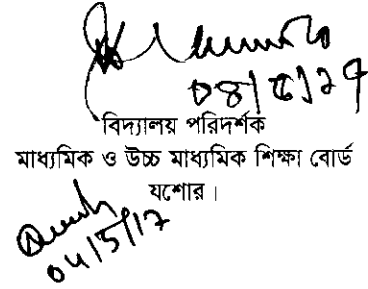 ০৪/৫/১৭
বিদ্যালয় পরিদর্শক
মাধ্যমিক ও উচ্চ মাধ্যমিক শিক্ষা বোর্ড
যশোর।
04/5/17